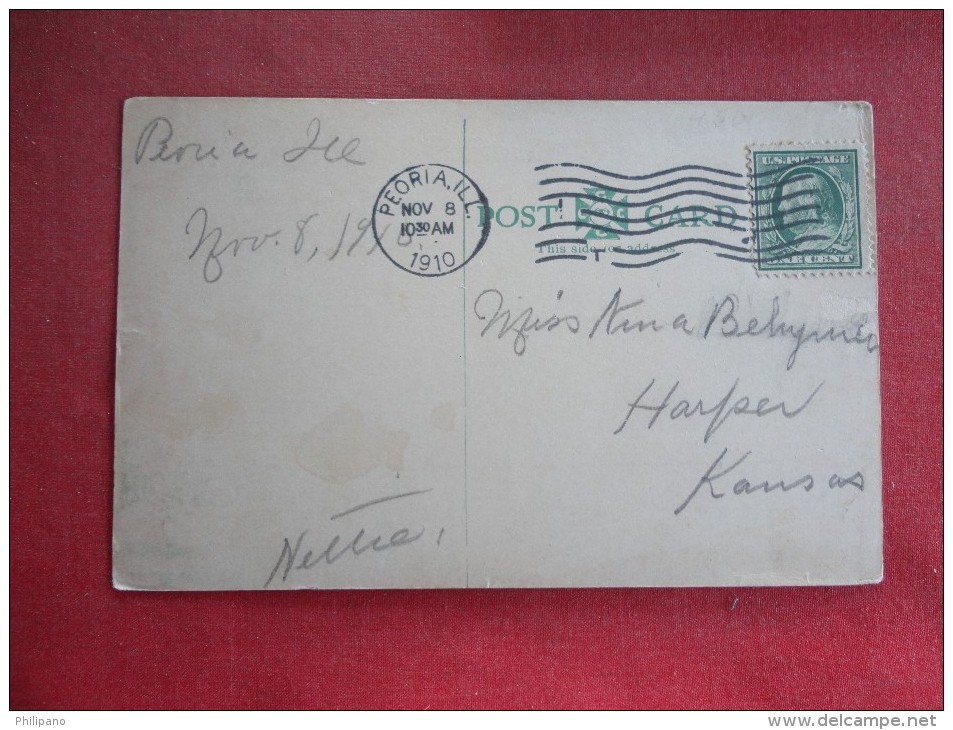 Peoria Ill
Nov. 8, 1910
Nettie.
PEORIA, ILL.
NOV 8
10 30 AM
1910
POST CARD
This side for address.
U.S. POSTAGE
ONE CENT
Miss Nina Behymer
Harper
Kansas
Philipano
www.delcampe.net